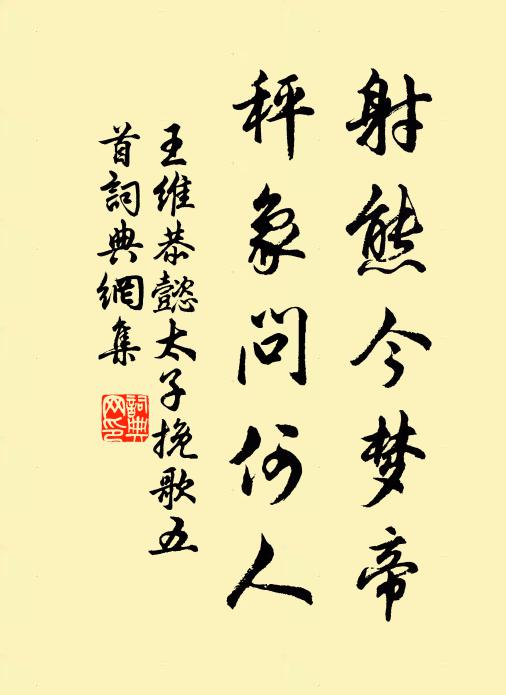 射熊今梦帝
秤象问何人
王维恭懿太子挽歌五
首詞典網集
詞典
网印